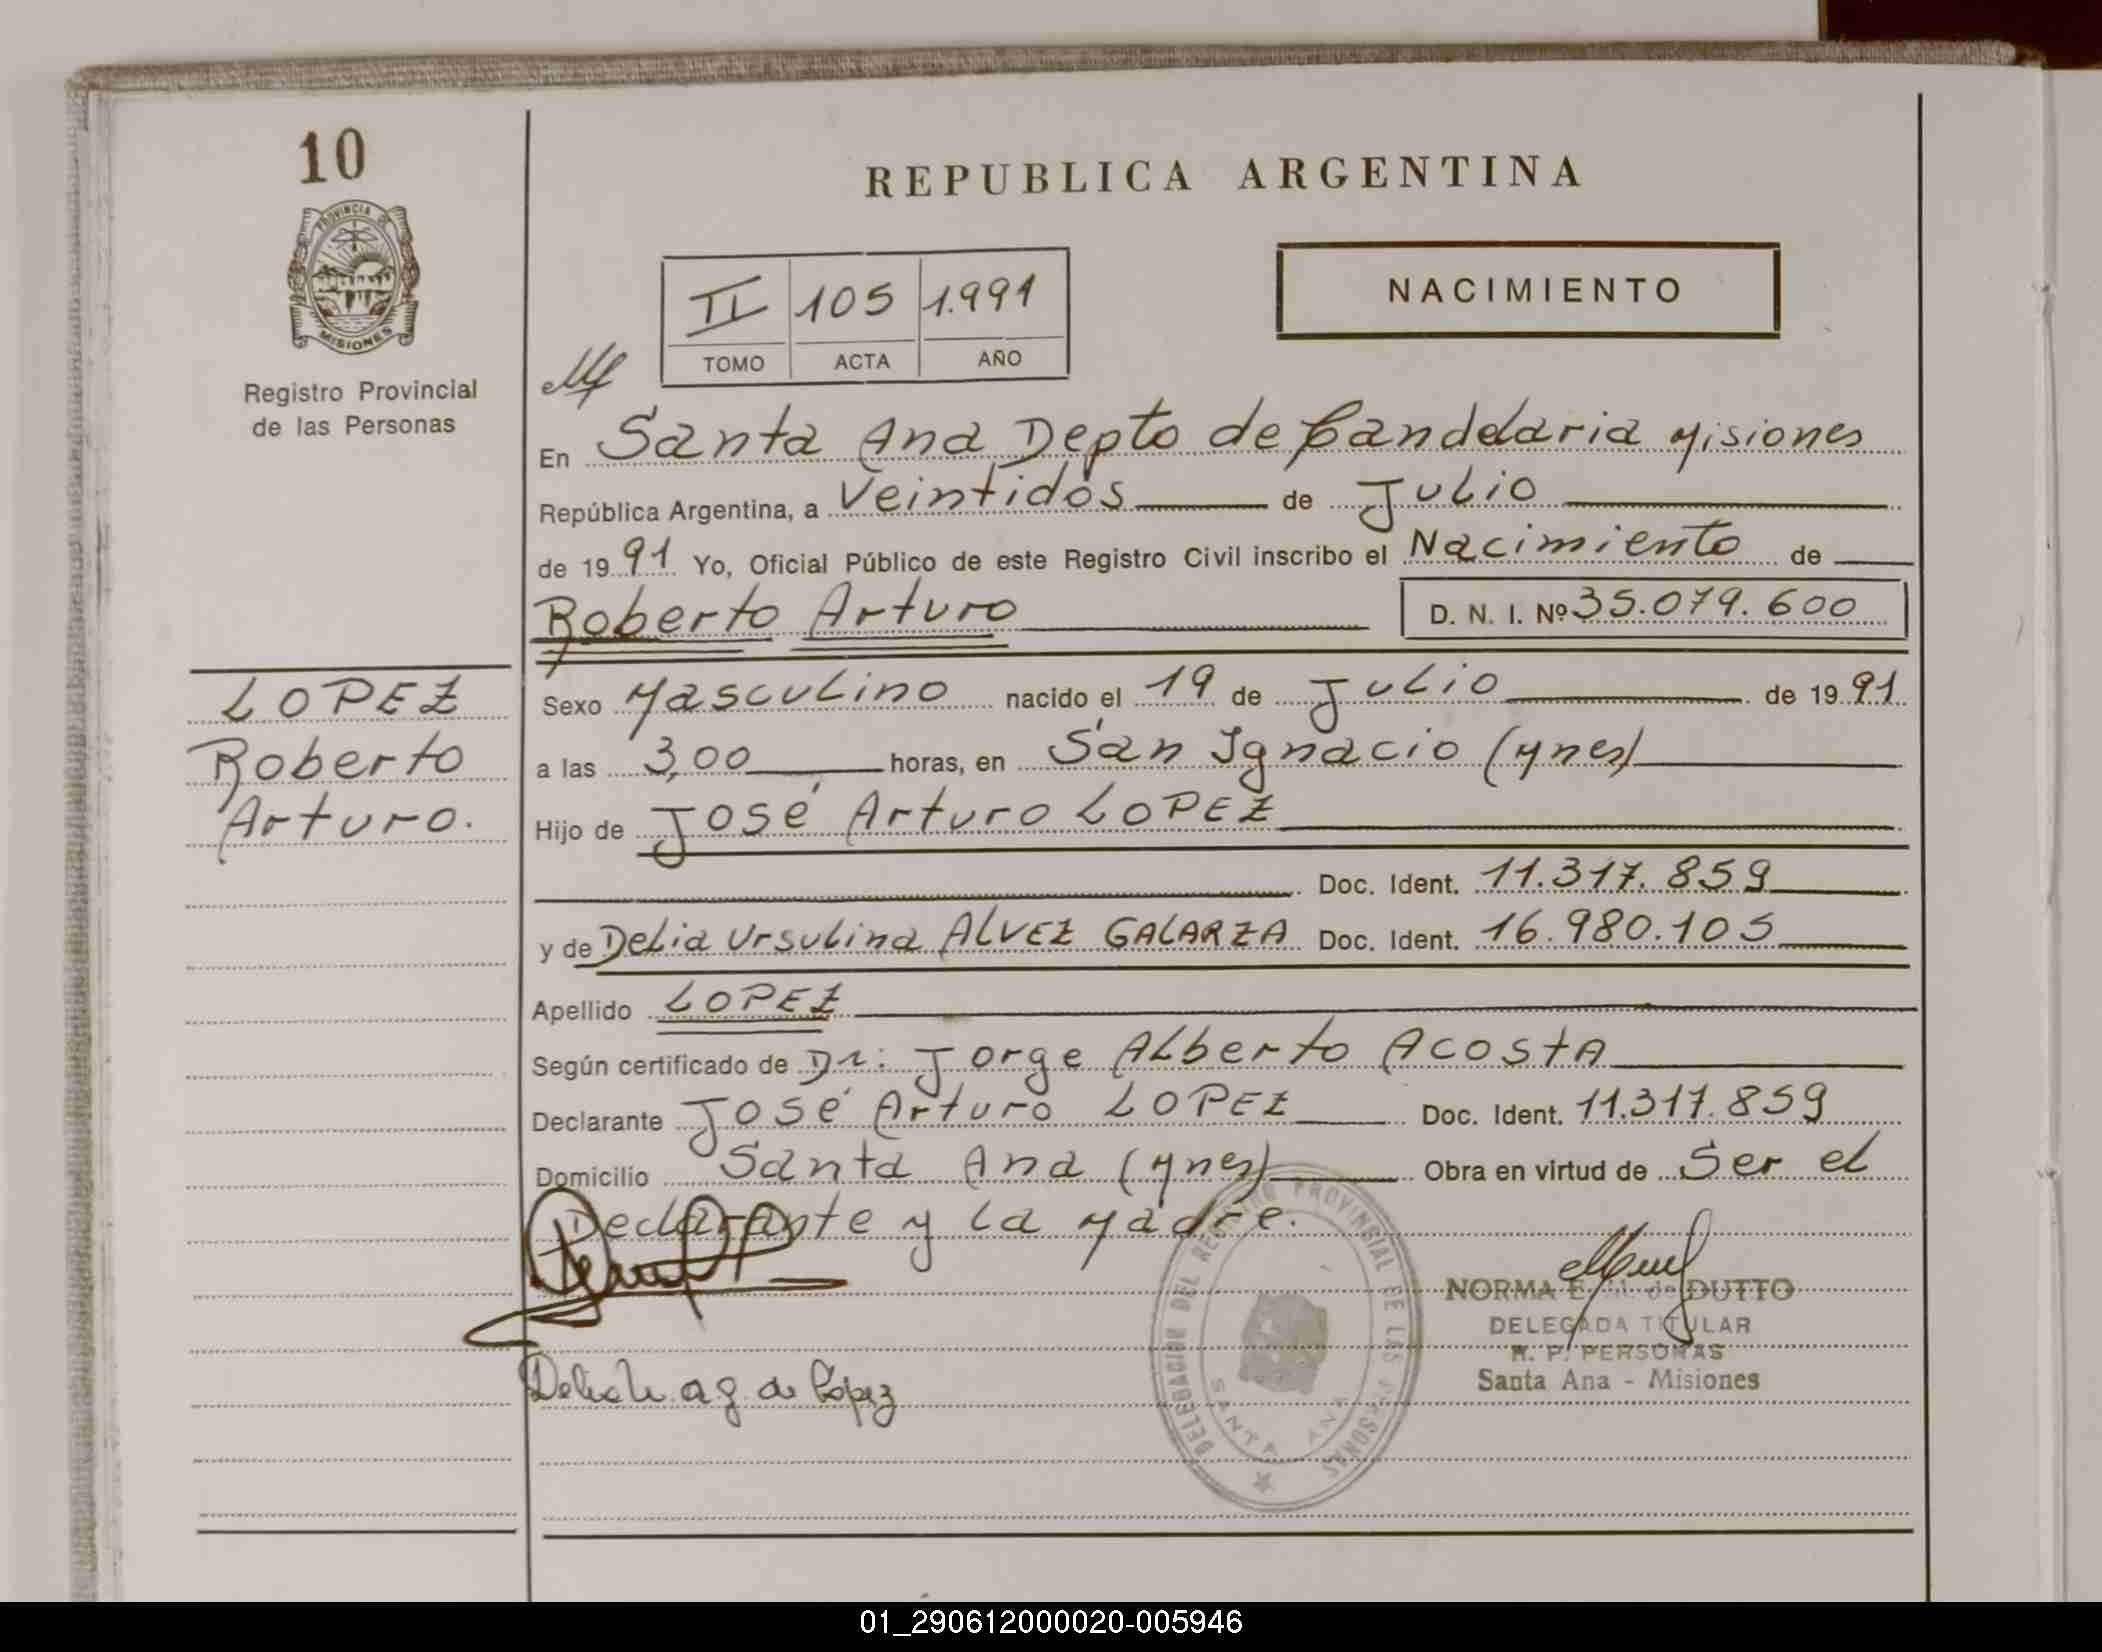 10
PROVINCIA DE
MISIONES
Registro Provincial
de las Personas
REPUBLICA ARGENTINA
II 105 1.991
TOMO ACTA AÑO
NACIMIENTO
En Santa Ana Depto de Candelaria Misiones
República Argentina, a Veintidós de Julio
de 1991 Yo, Oficial Público de este Registro Civil inscribo el Nacimiento de
Roberto Arturo D. N. I. Nº 35.079.600
LOPEZ
Roberto
Arturo.
Sexo Masculino nacido el 19 de Julio de 1991
a las 3,00 horas, en San Ignacio (Mnes)
Hijo de José Arturo LOPEZ
Doc. Ident. 11.317.859
y de Delia Ursulina ALVEZ GALARZA Doc. Ident. 16.980.105
Apellido LOPEZ
Según certificado de Dr: Jorge Alberto Acosta
Declarante José Arturo LOPEZ Doc. Ident. 11.317.859
Domicilio Santa Ana (Mnes) Obra en virtud de Ser el
Declarante y la Madre.
DELEGACION DEL REGISTRO PROVINCIAL DE LAS PERSONAS
SANTA ANA
NORMA E. de DUTTO
DELEGADA TITULAR
R. P. PERSONAS
Santa Ana - Misiones
de Lopez
01_290612000020-005946